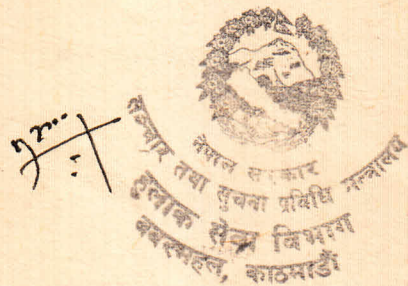 नेपाल सरकार
सञ्चार तथा सूचना प्रविधि मन्त्रालय
हुलाक सेवा विभाग
बबरमहल, काठमाडौं